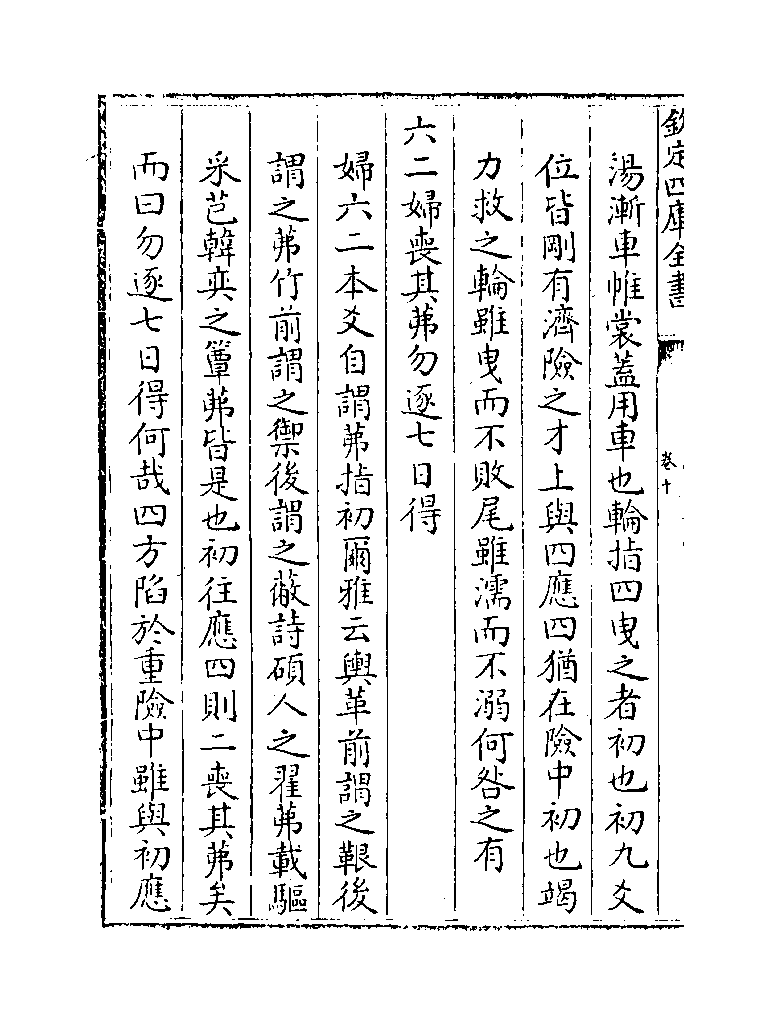 欽定四庫全書
卷十
湯漸車帷裳蓋用車也輪指四曳之者初也初九爻
位皆剛有濟險之才上與四應四猶在險中初也竭
力救之輪雖曳而不敗尾雖濡而不溺何咎之有
六二婦喪其茀勿逐七日得
婦六二本爻自謂茀指初爾雅云輿革前謂之鞎後
謂之茀竹前謂之禦後謂之蔽詩碩人之翟茀載驅
采芑韓奕之簟茀皆是也初往應四則二喪其茀矣
而曰勿逐七日得何哉四方陷於重險中雖與初應